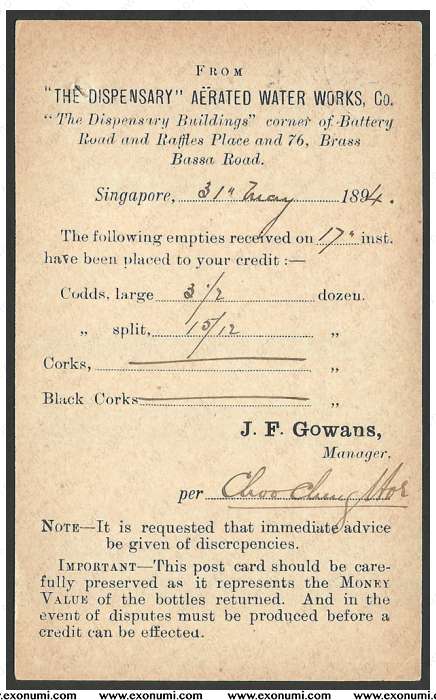 FROM
"THE DISPENSARY" AËRATED WATER WORKS, Co.
"The Dispensary Buildings" corner of Battery
Road and Raffles Place and 76, Brass
Bassa Road.
Singapore, 31st May 1894.
The following empties received on 17th inst.
have been placed to your credit :—
Codds, large 3 1/2 dozen.
„ split, 1 5/12 „
Corks, „
Black Corks „
J. F. Gowans,
Manager.
per Choo Cheng Hoe
NOTE—It is requested that immediate advice
be given of discrepencies.
IMPORTANT—This post card should be care-
fully preserved as it represents the MONEY
VALUE of the bottles returned. And in the
event of disputes must be produced before a
credit can be effected.
www.exonumi.com www.exonumi.com www.exonumi.com www.exonumi.com